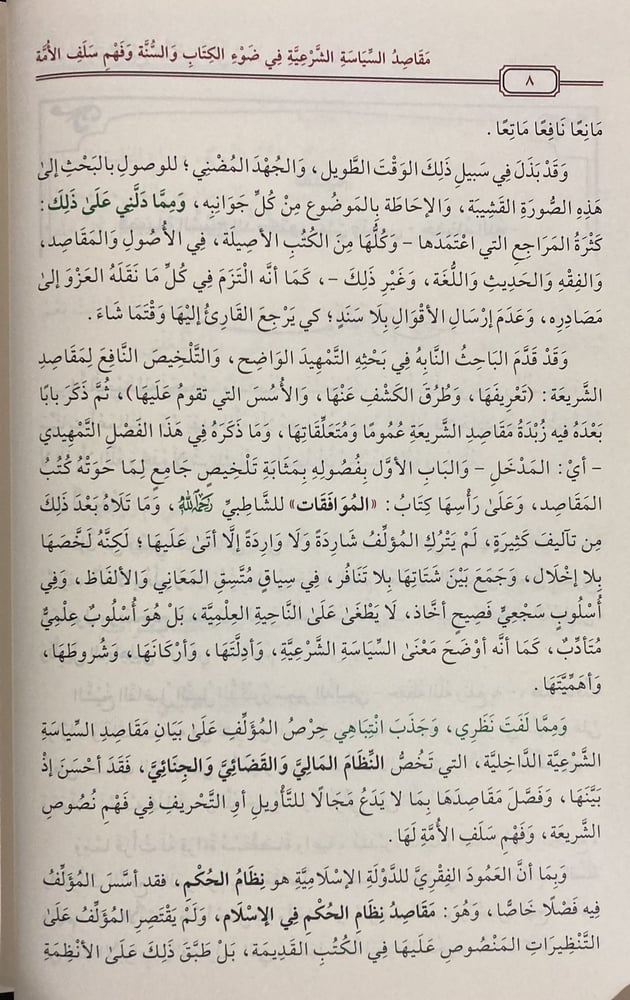 مَقَاصِدُ السِّيَاسَةِ الشَّرْعِيَّةِ فِي ضَوْءِ الكِتَابِ وَالسُّنَّةِ وَفَهْمِ سَلَفِ الأُمَّة
٨
مَانِعًا نَافِعًا مَاتِعًا .
وَقَدْ بَذَلَ فِي سَبِيلِ ذَلِكَ الوَقْتَ الطَّوِيل، وَالجُهْدَ المُضْنِي؛ للوصولِ بالبَحْثِ إلىٰ
هَذِهِ الصُّورَةِ القَشِيبَة، وَالإحَاطَةِ بِالمَوضُوعِ مِنْ كُلِّ جَوَانِبِه، وَمِمَّا دَلَّنِي عَلَىٰ ذَلِكَ :
كَثْرَةُ المَرَاجِعِ التي اعْتَمَدَها -وَكُلُّهَا مِنَ الكُتُبِ الأصِيلَة، فِي الأُصُولِ وَالمَقَاصِد،
وَالفِقْهِ وَالحَدِيثِ وَاللُّغَة، وَغَيْرِ ذَلكَ -، كَمَا أنَّه التَزَمَ فِي كُلِّ مَا نَقَلَهُ العَزْوَ إلىٰ
مَصَادِرِه، وَعَدَمَ إرْسَالِ الأقْوَالِ بِلَا سَنَدٍ؛ كي يَرْجِعَ القَارِئُ إلَيْهَا وَقْتَمَا شَاءَ .
وَقَدْ قَدَّمَ البَاحِثُ النَّابِهُ فِي بَحْثِهِ التَّمْهِيدَ الوَاضِح، وَالتَّلْخِيصَ النَّافِعَ لِمَقَاصِدِ
الشَّرِيعَة: (تَعْرِيفَهَا، وَطُرُقَ الكَشْفِ عَنْهَا، وَالأُسُسَ التي تقومُ عَلَيهَا)، ثُمَّ ذَكَرَ بابًا
بَعْدَهُ فيه زُبْدَةُ مَقَاصِدِ الشَّرِيعَةِ عُمُومًا وَمُتَعَلِّقَاتِهَا، وَمَا ذَكَرَهُ فِي هَذَا الفَصْلِ التَّمْهِيدي
- أيْ: المَدْخَلِ - وَالبَابِ الأوَّل بِفُصُولِهِ بِمَثَابَةِ تَلْخِيصٍ جَامِعٍ لِمَا حَوَتْهُ كُتُبُ
المَقَاصِد، وَعَلَىٰ رَأْسِهَا كِتَابُ: «المُوَافَقَات» للشَّاطِبيِّ رَحِمَهُ اللهُ، وَمَا تَلَاهُ بَعْدَ ذَلكَ
مِن تآليفَ كَثِيرَةٍ، لَمْ يَتْرُكِ المُؤلِّفُ شَارِدَةً وَلَا وَارِدَةً إلَّا أتَىٰ عَلَيهَا؛ لَكِنَّهُ لَخَّصَهَا
بِلا إخْلَال، وَجَمَعَ بَيْنَ شَتَاتِهَا بِلا تَنَافُر، فِي سِياقٍ مُتَّسِقِ المَعَانِي وَالألفَاظ، وَفِي
أُسْلُوبٍ سَجْعِيٍّ فَصِيحٍ أخَّاذ، لَا يَطْغَىٰ عَلَىٰ النَّاحِيةِ العِلْمِيَّة، بَلْ هُوَ أُسْلُوبٌ عِلْمِيٌّ
مُتَأدِّبٌ، كَمَا أنَّه أوْضَحَ مَعْنَىٰ السِّيَاسَةِ الشَّرْعِيَّة، وَأدِلَّتَهَا، وَأرْكَانَهَا، وَشُروطَهَا،
وَأهَمِّيَّتَهَا .
وَمِمَّا لَفَتَ نَظَرِي، وَجَذَبَ انْتِبَاهِي حِرْصُ المُؤلِّفِ عَلَىٰ بَيَانِ مَقَاصِدِ السِّيَاسةِ
الشَّرْعِيَّةِ الدَّاخِليَّة، التي تَخُصُّ النِّظَامَ المَالِيَّ وَالقَضَائِيَّ وَالجِنَائِيَّ، فَقَدَ أحْسَنَ إذْ
بَيَّنَهَا، وَفَصَّلَ مَقَاصِدَهَا بِمَا لا يَدَعُ مَجَالًا للتَّأوِيلِ أوِ التَّحْرِيفِ فِي فَهْمِ نُصُوصِ
الشَّرِيعَة، وَفَهْمِ سَلَفِ الأُمَّةِ لَهَا .
وَبِمَا أنَّ العَمُودَ الفِقْرِيَّ للدَّوْلَةِ الإسْلَامِيَّةِ هو نِظَامُ الحُكْمِ، فقد أسَّسَ المُؤلِّفُ
فِيه فَصْلًا خَاصًّا، وَهُوَ: مَقَاصِدُ نِظَامِ الحُكْمِ فِي الإسْلَام، وَلَمْ يَقْتَصِرِ المُؤلِّفُ عَلَىٰ
التَّنْظِيرَاتِ المَنْصُوصِ عَلَيهَا فِي الكُتُبِ القَدِيمَة، بَلْ طَبَّقَ ذَلكَ عَلَىٰ الأنْظِمَةِ